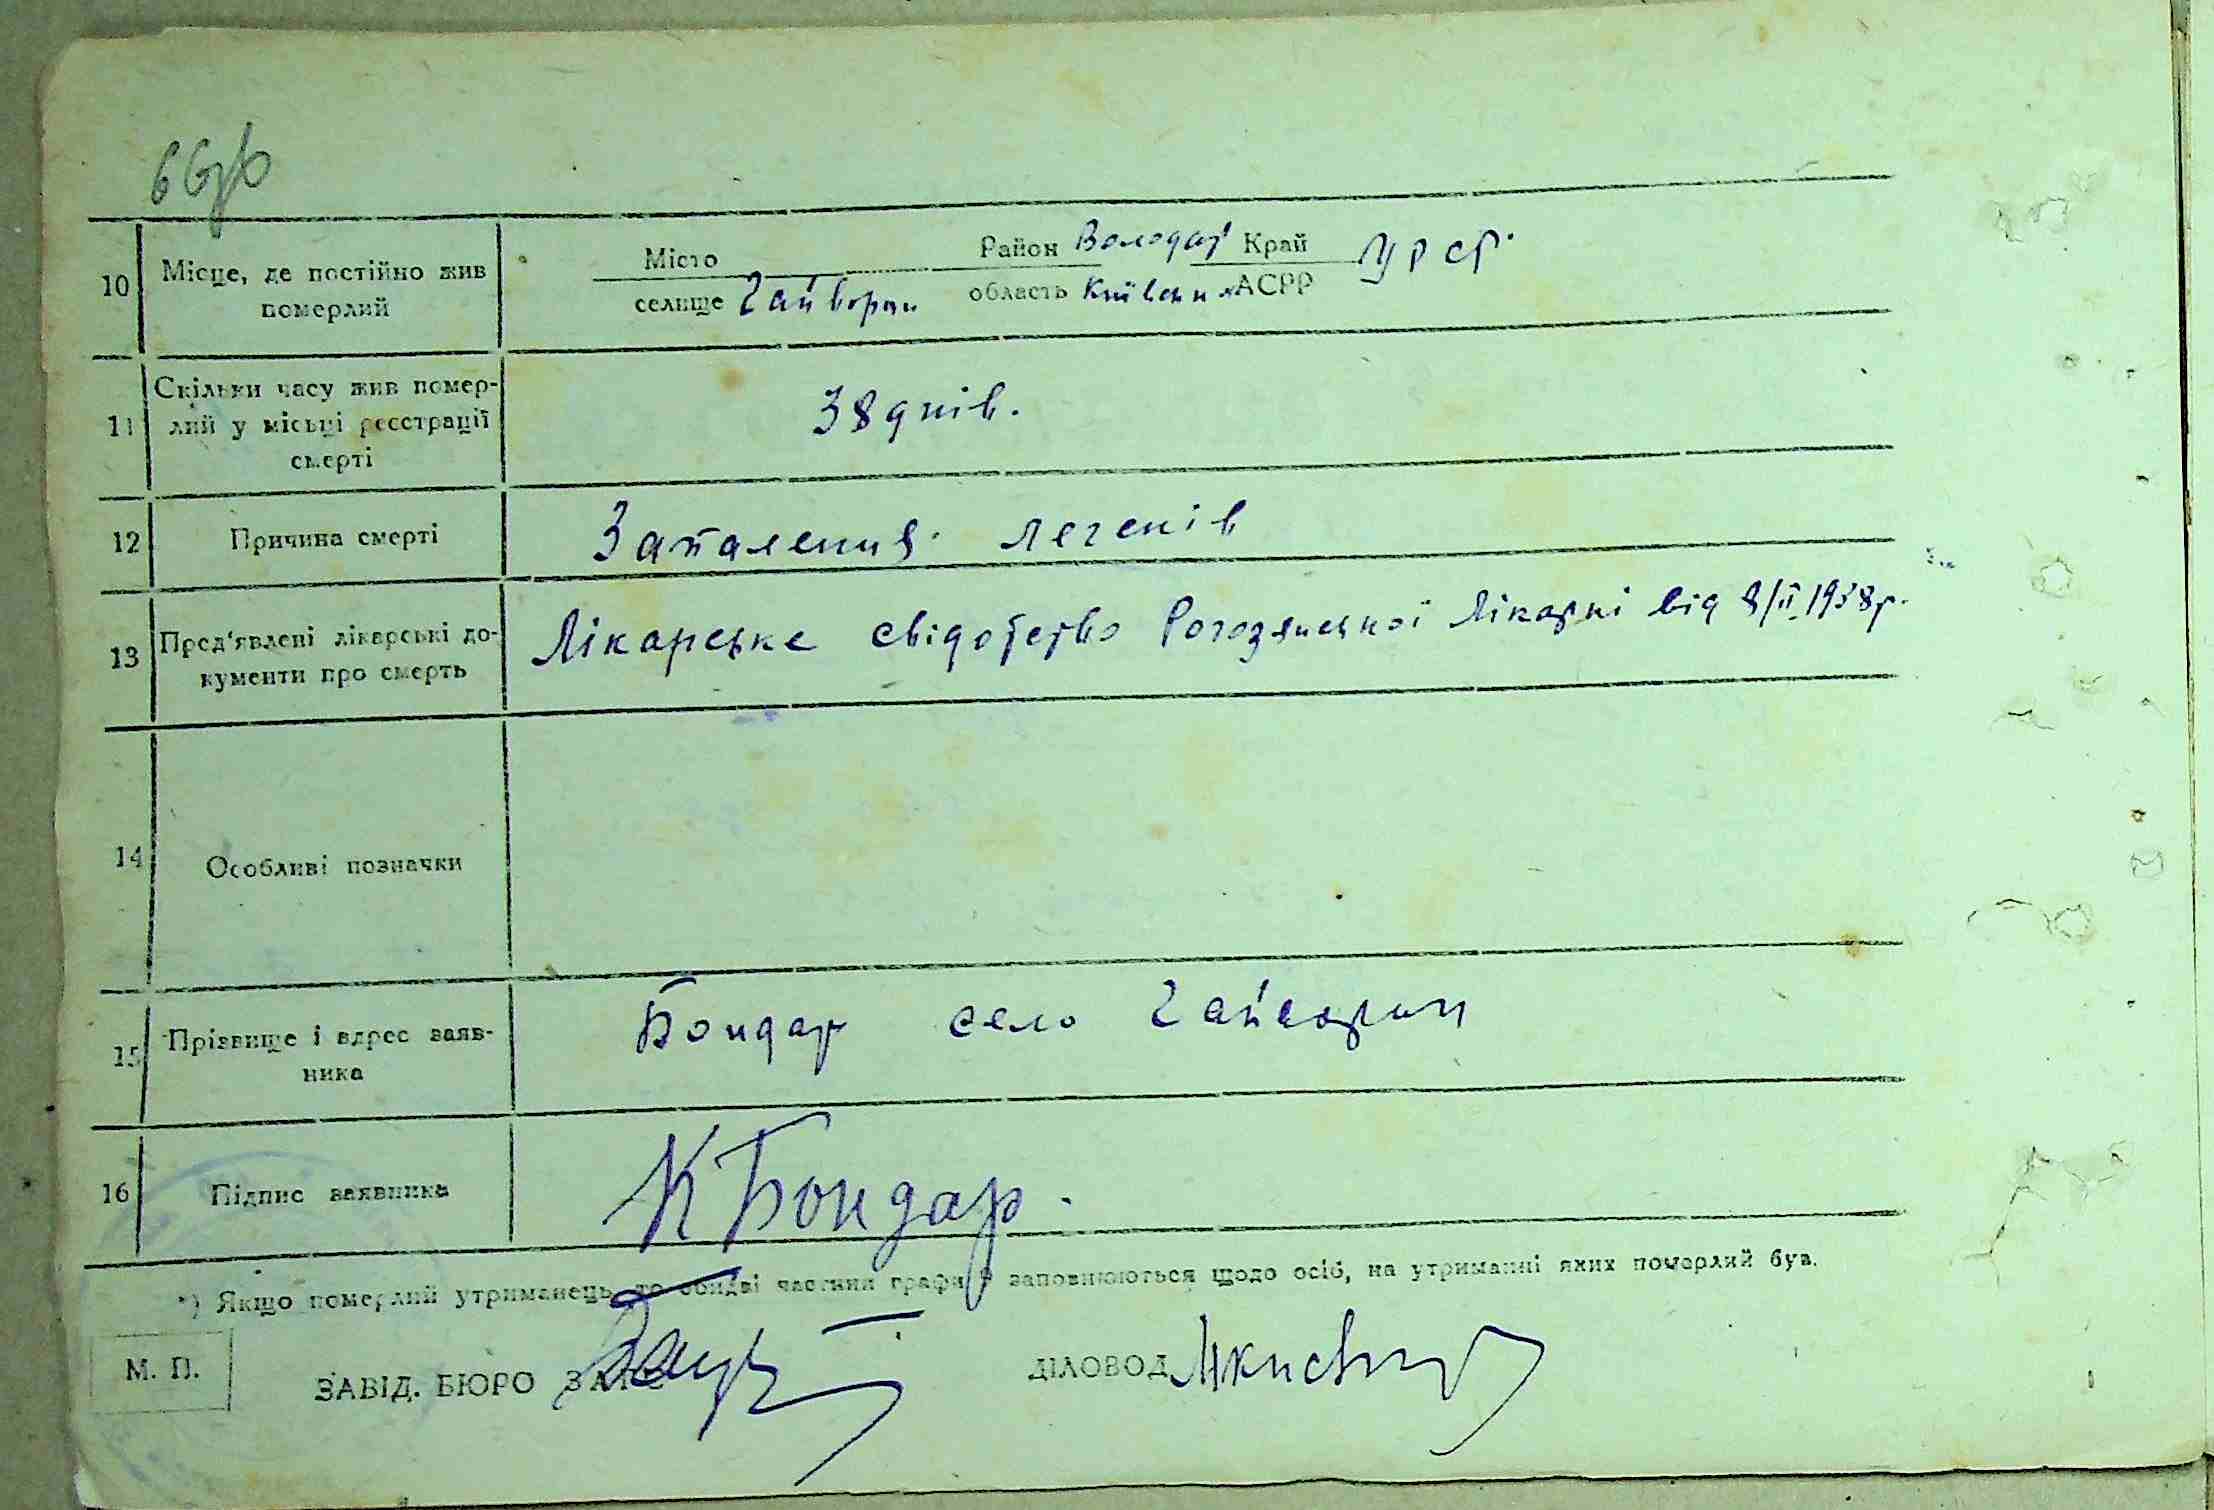 66зв
10 Місце, де постійно жив померлий
Місто Район Володар Край УРСР
селище Гайворон область Київськ АСРР
11 Скільки часу жив помер-
лий у місьці реєстрації
смерті
38 днів.
12 Причина смерті Запалення легенів
13 Пред'явлені лікарські до-
кументи про смерть
Лікарське свідотство Рогозянської лікарні від 8/ІІ 1938р.
14 Особливі позначки
15 Прізвище і адрес заяв-
ника
Бондар село Гайворон
16 Підпис заявника К Бондар.
*) Якщо померлий утриманець, то обидві частини графи 9 заповнюються щодо осіб, на утриманні яких померлий був.
М. П.
ЗАВІД. БЮРО ЗАГС ДІЛОВОД